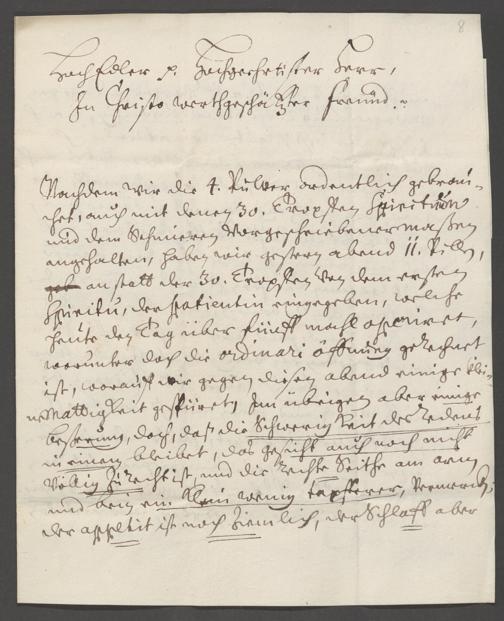 8
HochEdler p. Hochgeehrtister Herr,
In Christo werthgeschätzter Freund.
Nachdem wir die 4. Pulver ordentlich gebrau-
chet, auch mit denen 30. Tropffen Spirituum
und dem Schmieren Vorgeschriebener maßen
angehalten, haben wir gestern abend 11. Pills,
anstatt der 30. Tropffen von dem ersten
Spiritu, der patientin eingegeben, welche
heute den Tag über fünff mahl operiret,
worunter doch die ordinari öffnung gerechnet
ist, worauf wir gegen diesen abend einige klei-
ne Mattigkeit gespüret, Im übrigen aber einige
beßerung, doch, daß die Schwerigkeit des Redens
in einem bleibet, das gesicht auch noch nicht
völlig zu recht ist, und die rechte Seithe am arm
und bein ein klein wenig tapfferer, Vermercke,
der appetit ist noch ziemlich, der Schlaff aber